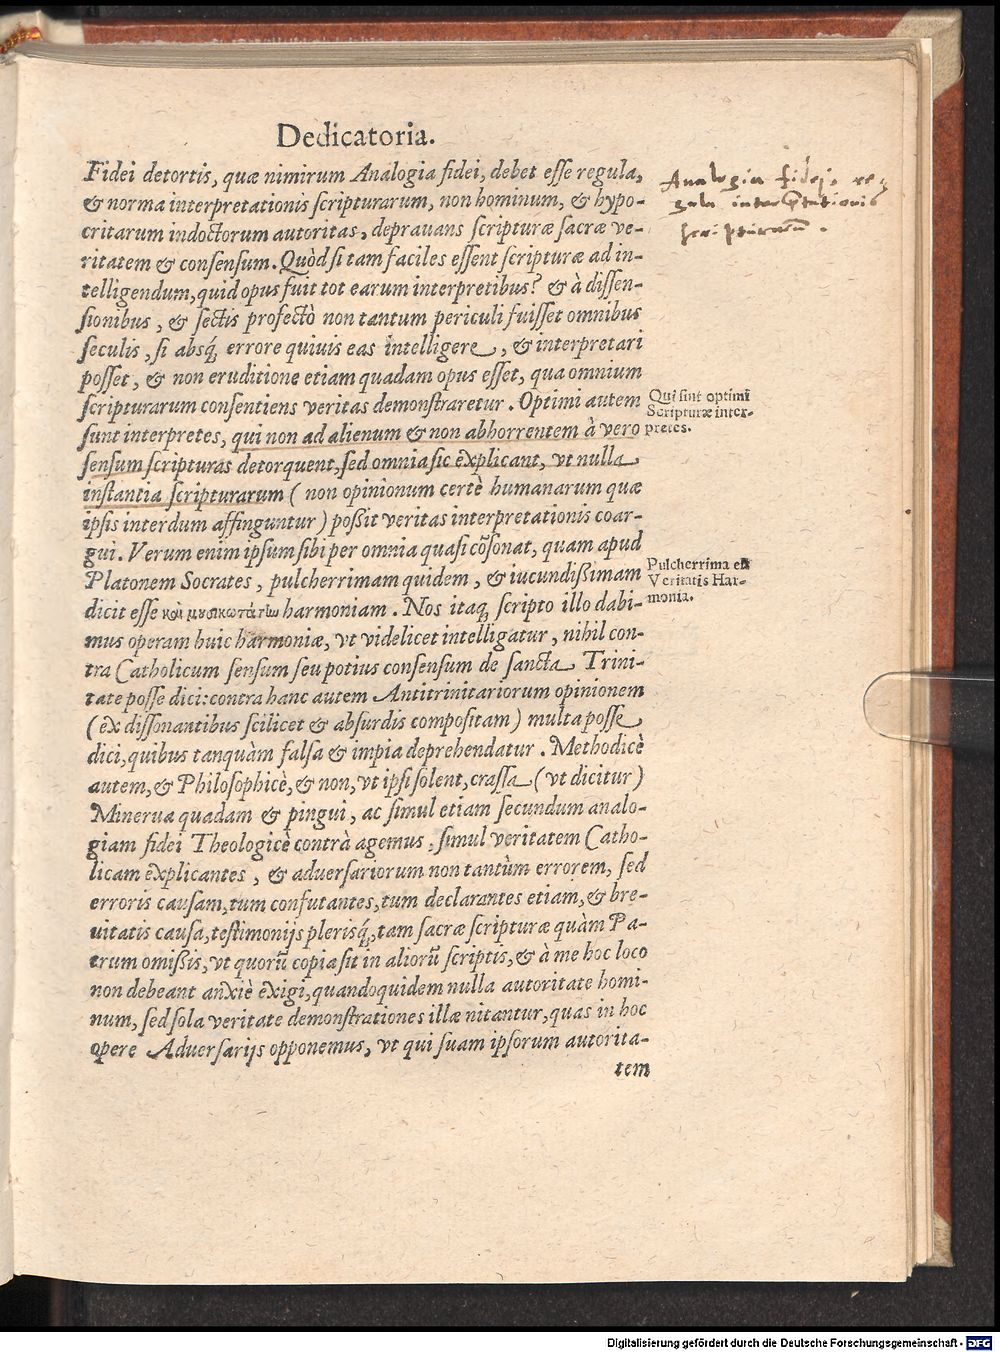 Dedicatoria.
Fidei detortis, quæ nimirum Analogia fidei, debet esse regula,
& norma interpretationis scripturarum, non hominum, & hypo-
critarum indoctorum autoritas, deprauans scripturæ sacræ ve-
ritatem & consensum. Quòd si tam faciles essent scripturæ ad in-
telligendum, quid opus fuit tot earum interpretibus? & à dissen-
sionibus, & sectis profectò non tantum periculi fuisset omnibus
seculis, si absq́; errore quiuis eas intelligere, & interpretari
posset, & non eruditione etiam quadam opus esset, qua omnium
scripturarum consentiens veritas demonstraretur. Optimi autem
sunt interpretes, qui non ad alienum & non abhorrentem à vero
sensum scripturas detorquent, sed omnia sic explicant, vt nulla
instantia scripturarum ( non opinionum certè humanarum quæ
ipsis interdum affinguntur ) poßit veritas interpretationis coar-
gui. Verum enim ipsum sibi per omnia quasi cōsonat, quam apud
Platonem Socrates, pulcherrimam quidem, & iucundißimam
dicit esse καὶ μυσικωτάτlω harmoniam. Nos itaq; scripto illo dabi-
mus operam huic harmoniæ, vt videlicet intelligatur, nihil con-
tra Catholicum sensum seu potius consensum de sancta Trini-
tate posse dici: contra hanc autem Antitrinitariorum opinionem
( ex dissonantibus scilicet & absurdis compositam ) multa posse
dici, quibus tanquàm falsa & impia deprehendatur. Methodicè
autem, & Philosophicè, & non, vt ipsi solent, crassa ( vt dicitur )
Minerua quadam & pingui, ac simul etiam secundum analo-
giam fidei Theologicè contrà agemus, simul veritatem Catho-
licam explicantes, & aduersariorum non tantùm errorem, sed
erroris causam, tum confutantes, tum declarantes etiam, & bre-
uitatis causa, testimonijs plerisq́;, tam sacræ scripturæ quàm Pa-
trum omißis, vt quorū copia sit in aliorū scriptis, & à me hoc loco
non debeant anxiè exigi, quandoquidem nulla autoritate homi-
num, sed sola veritate demonstrationes illæ nitantur, quas in hoc
opere Aduersarijs opponemus, vt qui suam ipsorum autorita-
tem
Analogia fidei, re
gula interpretationis
scripturarū.
Qui sint optimi
Scripturæ inter-
pretes.
Pulcherrima est
Veritatis Har-
monia.
Digitalisierung gefördert durch die Deutsche Forschungsgemeinschaft - DFG